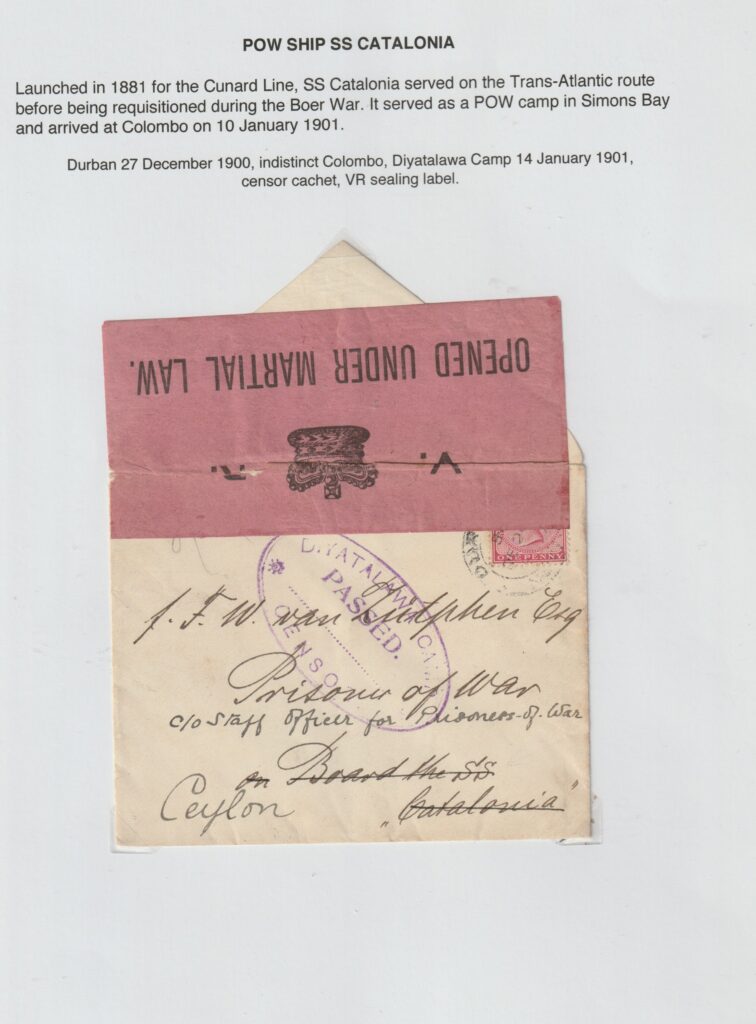 POW SHIP SS CATALONIA
Launched in 1881 for the Cunard Line, SS Catalonia served on the Trans-Atlantic route
before being requisitioned during the Boer War. It served as a POW camp in Simons Bay
and arrived at Colombo on 10 January 1901.
Durban 27 December 1900, indistinct Colombo, Diyatalawa Camp 14 January 1901,
censor cachet, VR sealing label.
OPENED UNDER MARTIAL LAW.
V. R.
ONE PENNY
DIYATALAWA CAM
PASSED.
CENSO
F. W. van Zutphen Esq
Prisoner of War
c/o Staff Officer for Prisoners-of-War
on Board the SS
Ceylon "Catalonia"